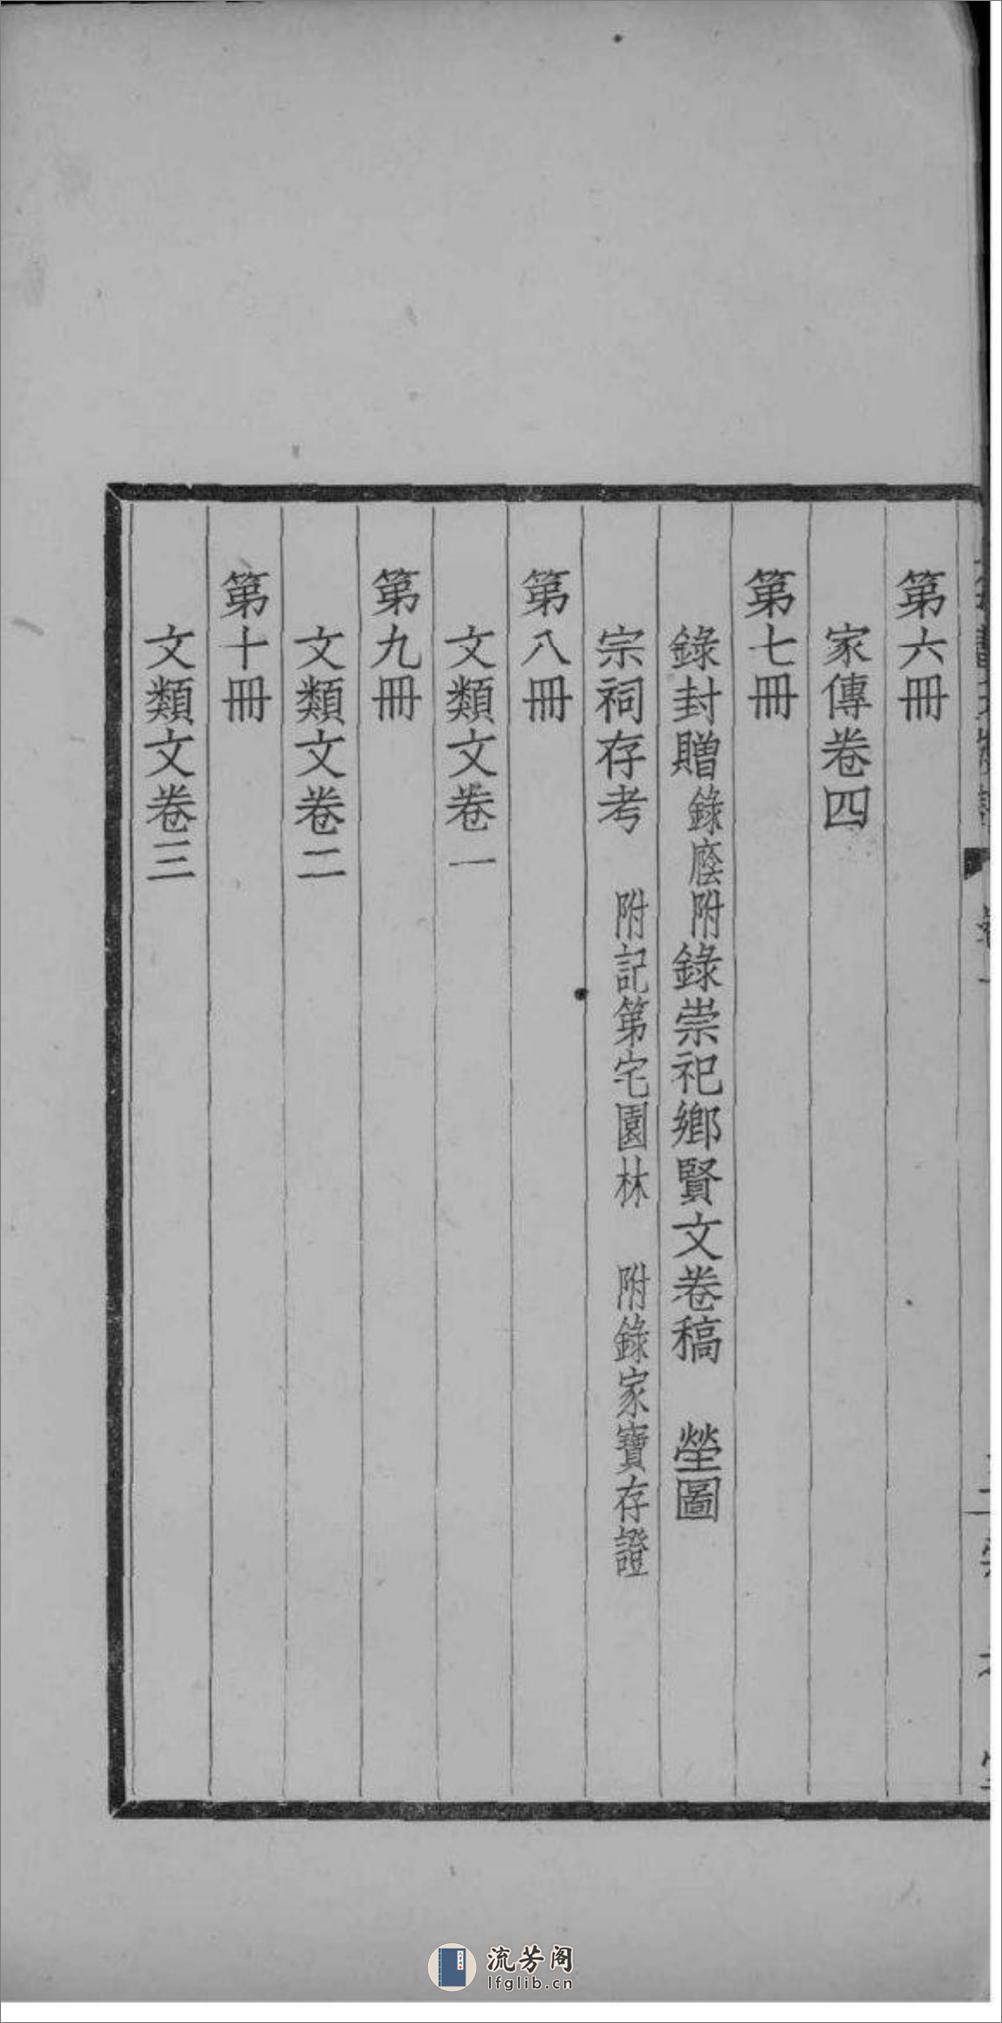 第六冊
家傳卷四
第七冊
錄封贈錄廕附錄崇祀鄉賢文卷稿　塋圖
宗祠存考　附記第宅園林　附錄家寶存證
第八冊
文類文卷一
第九冊
文類文卷二
第十冊
文類文卷三
流芳阁
lfglib.cn